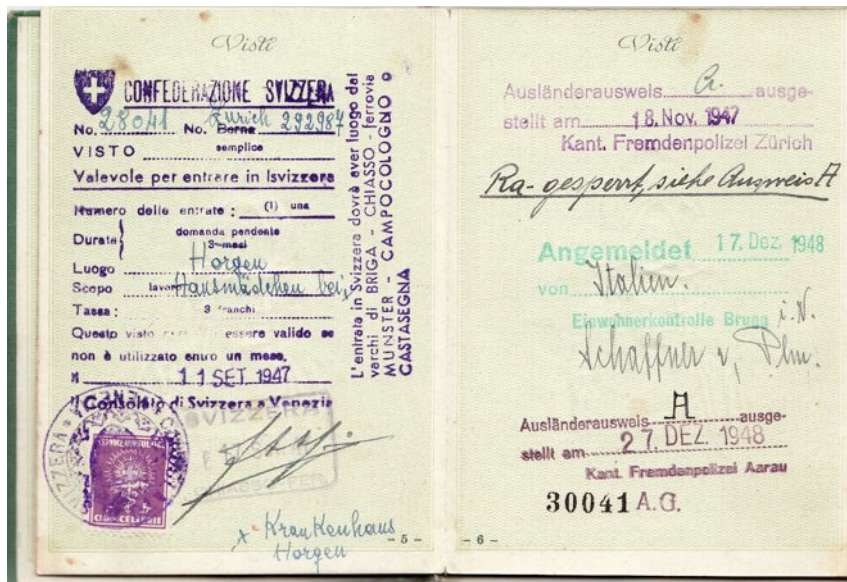 Visti
CONFEDERAZIONE SVIZZERA
No. 28041 No. Berna Zurich 292987
VISTO semplice
Valevole per entrare in Isvizzera
Numero delle entrate : (1) una
Durata} domanda pendente
3 mesi
Luogo Horgen
Scopo lavoro Hausmädchen bei
Tassa : 3 franchi
Questo visto essere valido se
non è utilizzato entro un mese.
11 SET 1947
Il Consolato di Svizzera a Venezia
L'entrata in Svizzera dovrà aver luogo dai
varchi di BRIGA - CHIASSO, ferrovia
MUNSTER - CAMPOCOLOGNO o
CASTASEGNA
SVIZZERA
SVIZZERA
x Krankenhaus
Horgen
- 5 -
Visti
Ausländerausweis A. ausge-
stellt am 18. Nov. 1947
Kant. Fremdenpolizei Zürich
Ra- gesperrt, siehe Ausweis A
Angemeldet 17. Dez. 1948
von Italien.
Einwohnerkontrolle Brugg i. V.
Schaffner
Ausländerausweis A ausge-
stellt am 27. DEZ. 1948
Kant. Fremdenpolizei Aarau
30041 A.G.
- 6 -